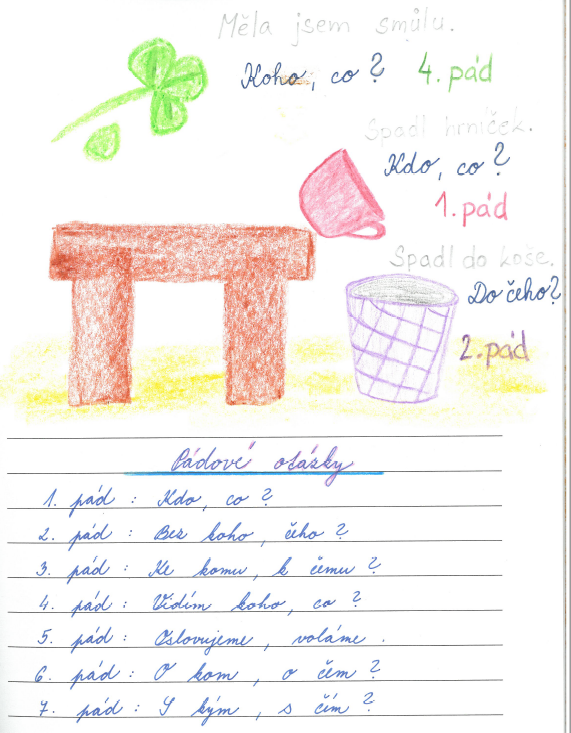 Měla jsem smůlu.
Koho, co? 4. pád
Spadl hrníček.
Kdo, co?
1. pád
Spadl do koše.
Do čeho?
2. pád
Pádové otázky
1. pád : Kdo, co ?
2. pád : Bez koho, čeho ?
3. pád : Ke komu, k čemu ?
4. pád : Vidím koho, co ?
5. pád : Oslovujeme, voláme .
6. pád : O kom, o čem ?
7. pád : S kým, s čím ?